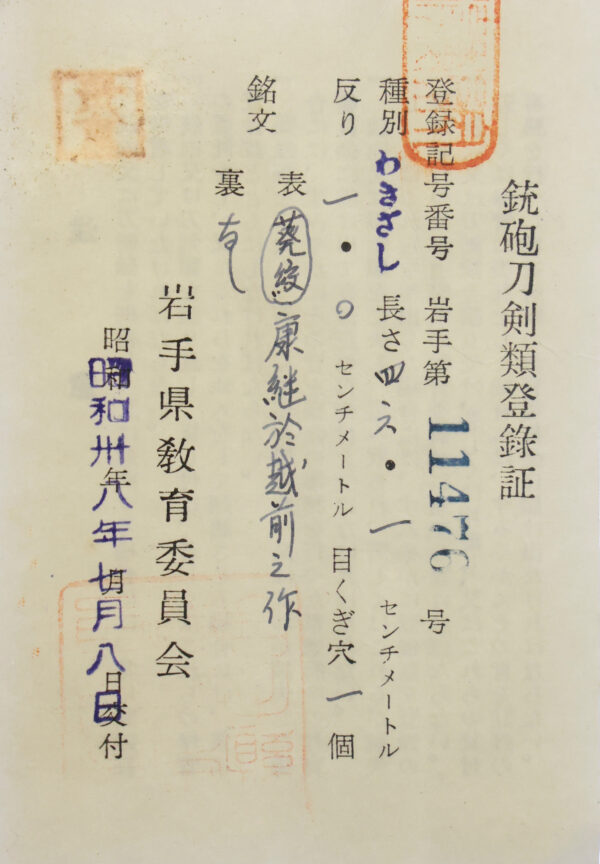 銃砲刀剣類登録証
登録記号番号 岩手第 11476 号
種別 わきざし 長さ 四六・一 センチメートル
反り 一・〇 センチメートル 目くぎ穴 一 個
銘文 表 葵紋 康継於越前之作
裏 なし
岩手県教育委員会
昭和卅八年七月八日交付